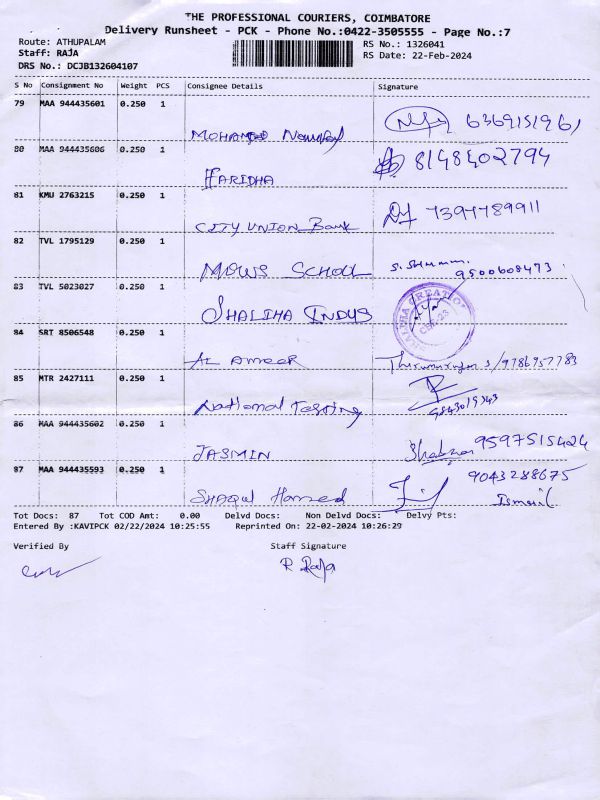 THE PROFESSIONAL COURIERS, COIMBATORE
Delivery Runsheet - PCK - Phone No.:0422-3505555 - Page No.:7
Route: ATHUPALAM RS No.: 1326041
Staff: RAJA RS Date: 22-Feb-2024
DRS No.: DCJB132604107
S No Consignment No Weight PCS Consignee Details Signature
79 MAA 944435601 0.250 1
MOHAMED 6369151961
80 MAA 944435606 0.250 1
HARIDHA 8148402794
81 KMU 2763215 0.250 1
CITY UNION Bank 7397789911
82 TVL 1795129 0.250 1
MOWS SCHOLL 9500608473
83 TVL 5023027 0.250 1
SHALIHA INDUS
CREATIO
CBE-23
84 SRT 8506548 0.250 1
AL AMEER 9786957783
85 MTR 2427111 0.250 1
National Testing
86 MAA 944435602 0.250 1
JASMIN 9597515424
87 MAA 944435593 0.250 1
SHAQUL Hameed 9043288675
Ismail
Tot Docs: 87 Tot COD Amt: 0.00 Delvd Docs: Non Delvd Docs: Delvy Pts:
Entered By :KAVIPCK 02/22/2024 10:25:55 Reprinted On: 22-02-2024 10:26:29
Verified By Staff Signature
R Raja